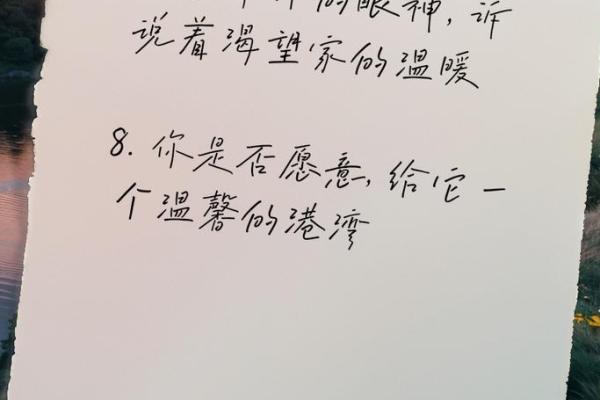 的眼神，诉
说着渴望家的温暖
8. 你是否愿意，给它一
个温馨的港湾